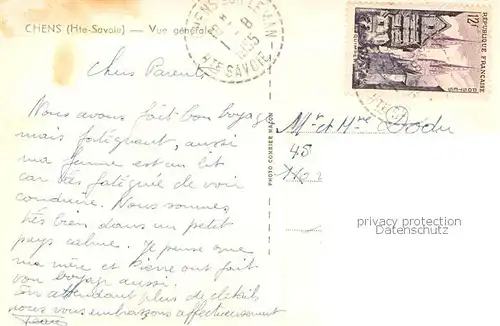 CHENS (Hte-Savoie) — Vue générale
CHENS SUR LEMAN
1 - 8
1955
HTE SAVOIE
12f
REPUBLIQUE FRANÇAISE
POSTES
Chers Parents
Nous avons fait bon voyage
mais fatiguant, aussi
ma femme est au lit
car très fatiguée de voir
conduire. Nous sommes
très bien dans un petit
pays calme. Je pense que
ma mère et Pierre ont fait
bon voyage aussi.
En attendant plus de détails
nous vous embrassons affectueusement
PHOTO COMBIER MACON
Mr et Mme Dodu
45
privacy protection
Datenschutz